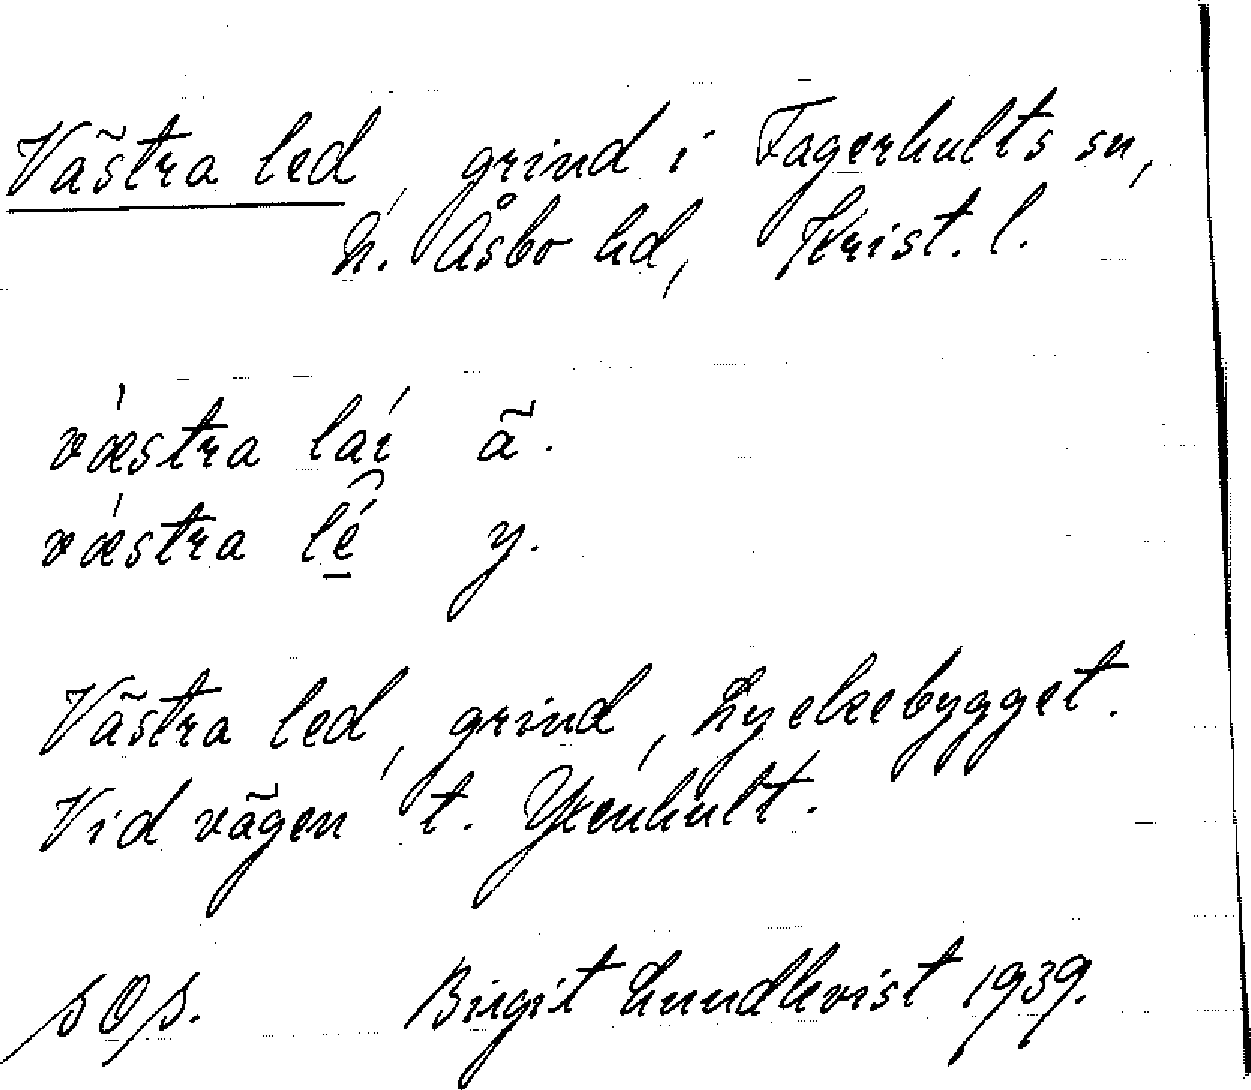 Västra led, grind i Fagerhults sn,
N. Åsbo hd, Krist. l.
vǽstra lai ä.
vǽstra lé y.
Västra led, grind, Lyckebygget.
Vid vägen t. Yxenhult.
SOS. Birgit Lundkvist 1939.